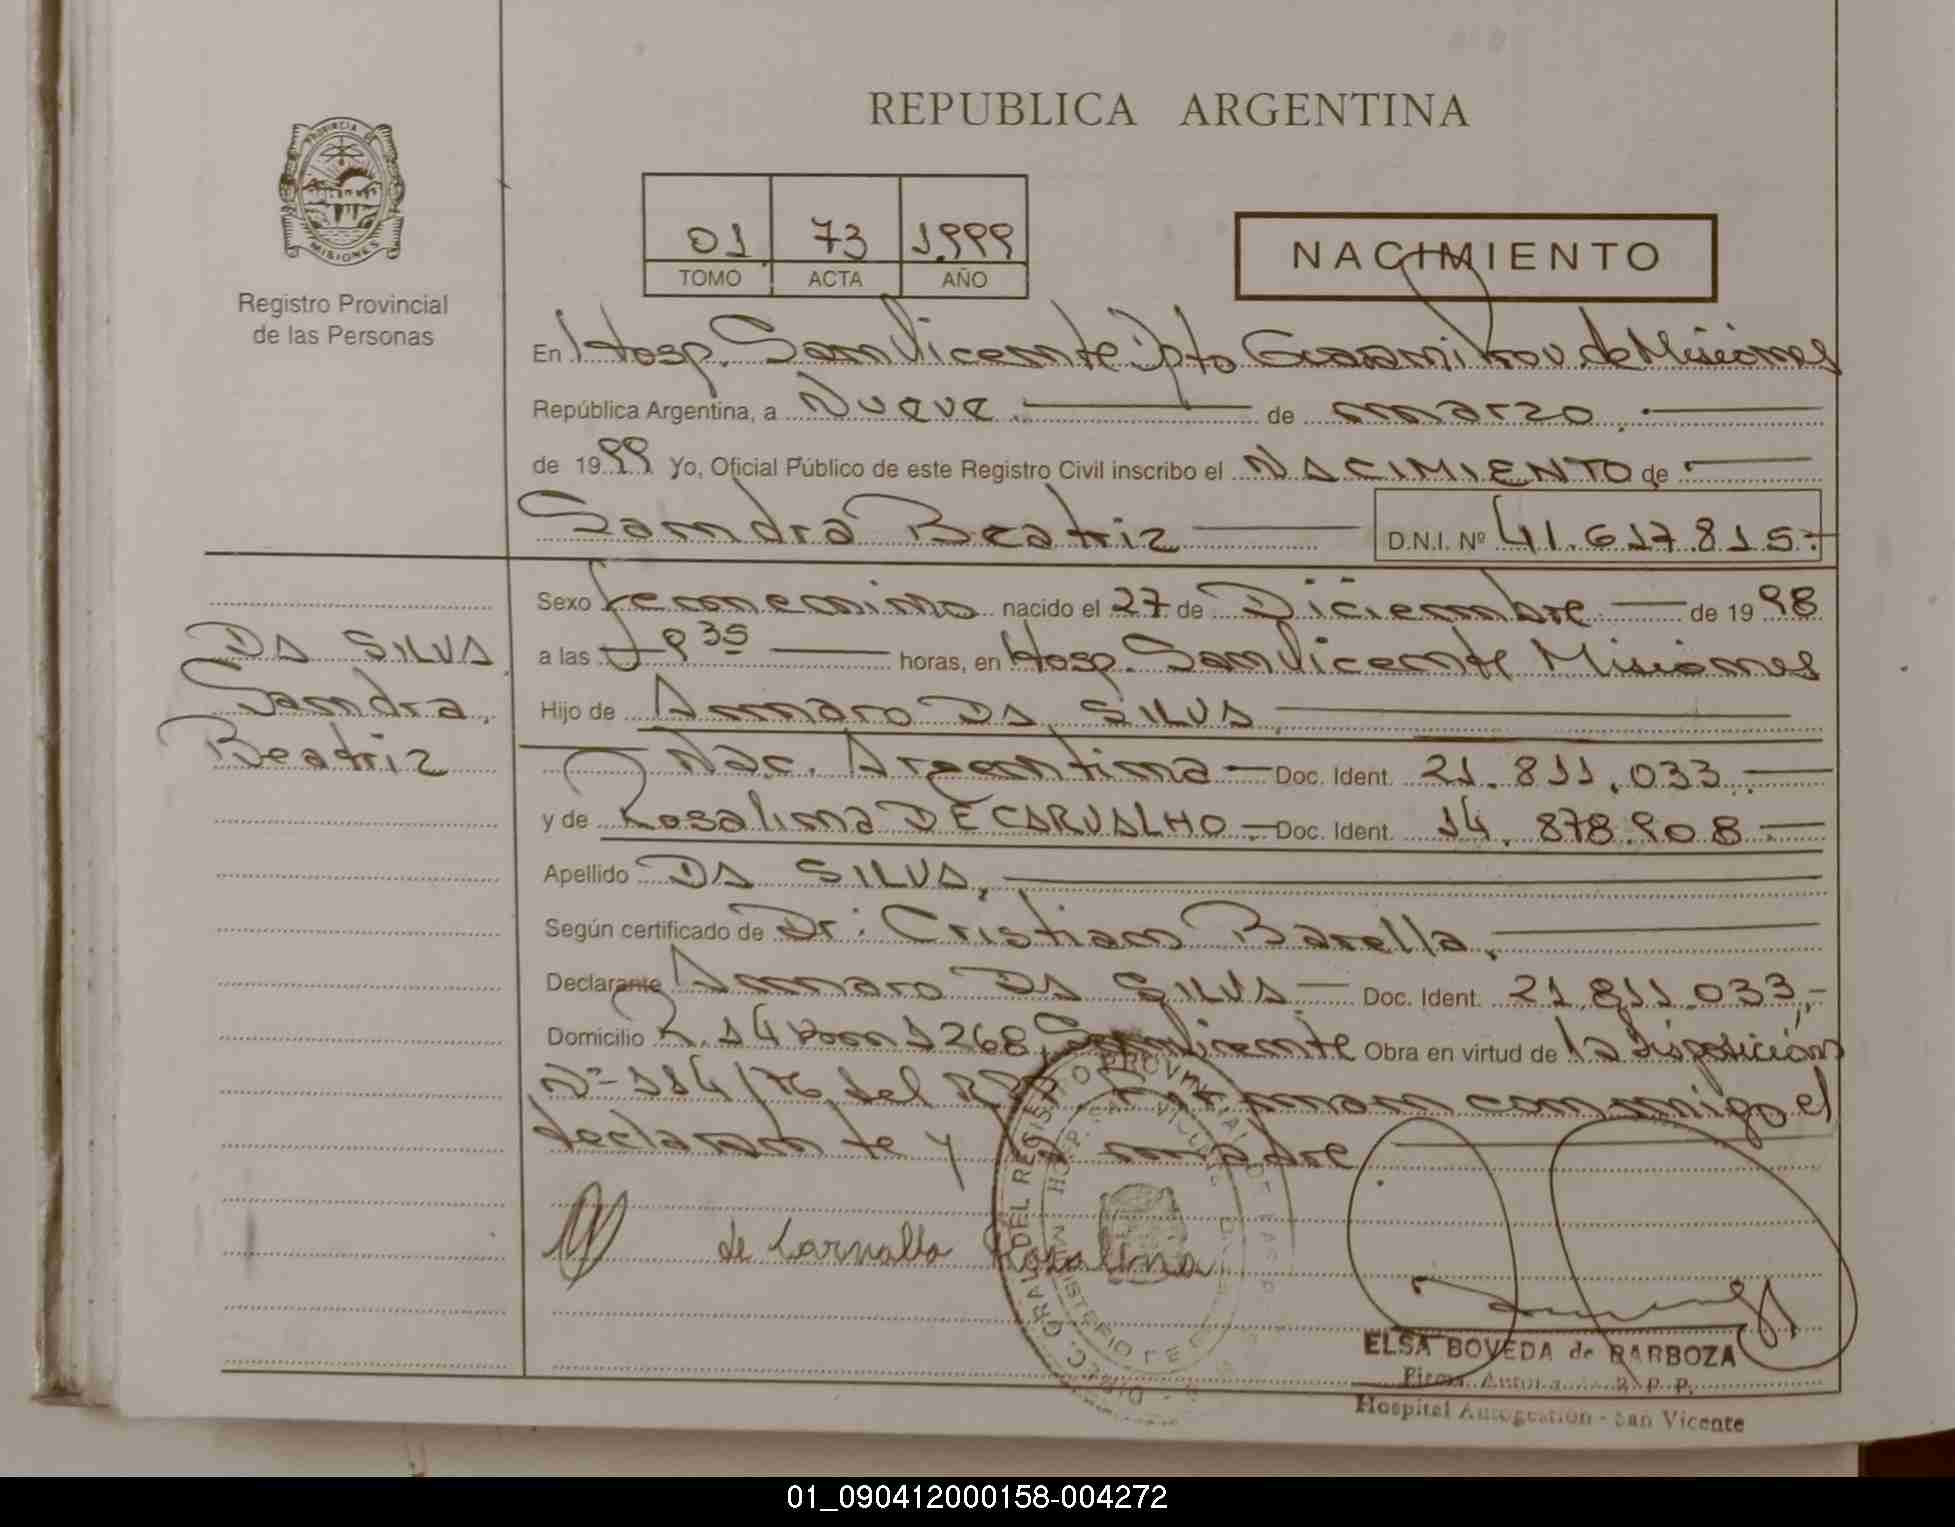 REPUBLICA ARGENTINA
PROVINCIA DE MISIONES
Registro Provincial
de las Personas
01 73 1.999
TOMO ACTA AÑO
NACIMIENTO
En Hosp. San Vicente Dpto Guarani Prov. de Misiones
República Argentina, a Nueve de marzo.
de 1999 Yo, Oficial Público de este Registro Civil inscribo el NACIMIENTO de
Sandra Beatriz D.N.I. Nº 41.617.815.-
DA SILVA,
Sandra,
Beatriz
Sexo femenino nacido el 27 de Diciembre de 1998
a las 9 35 horas, en Hosp. San Vicente Misiones
Hijo de Amaro DA SILVA,
Nac. Argentina Doc. Ident. 21.811.033.
y de Rosalina DE CARVALHO. Doc. Ident. 14.878.908.
Apellido DA SILVA,
Según certificado de Dr: Cristian Barella,
Declarante Amaro DA SILVA Doc. Ident. 21.811.033,-
Domicilio R.14 Km 1268, San Vicente Obra en virtud de la disposición
Nº 114/76 del RPP Firman conmigo el
declarante y la madre
de Carvallo Rosalina
DIREC. GRAL. DEL REGISTRO PROVINCIAL DE LAS P
ELSA BOVEDA de BARBOZA
Firma R.P.P.
Hospital Autogestión - San Vicente
01_090412000158-004272